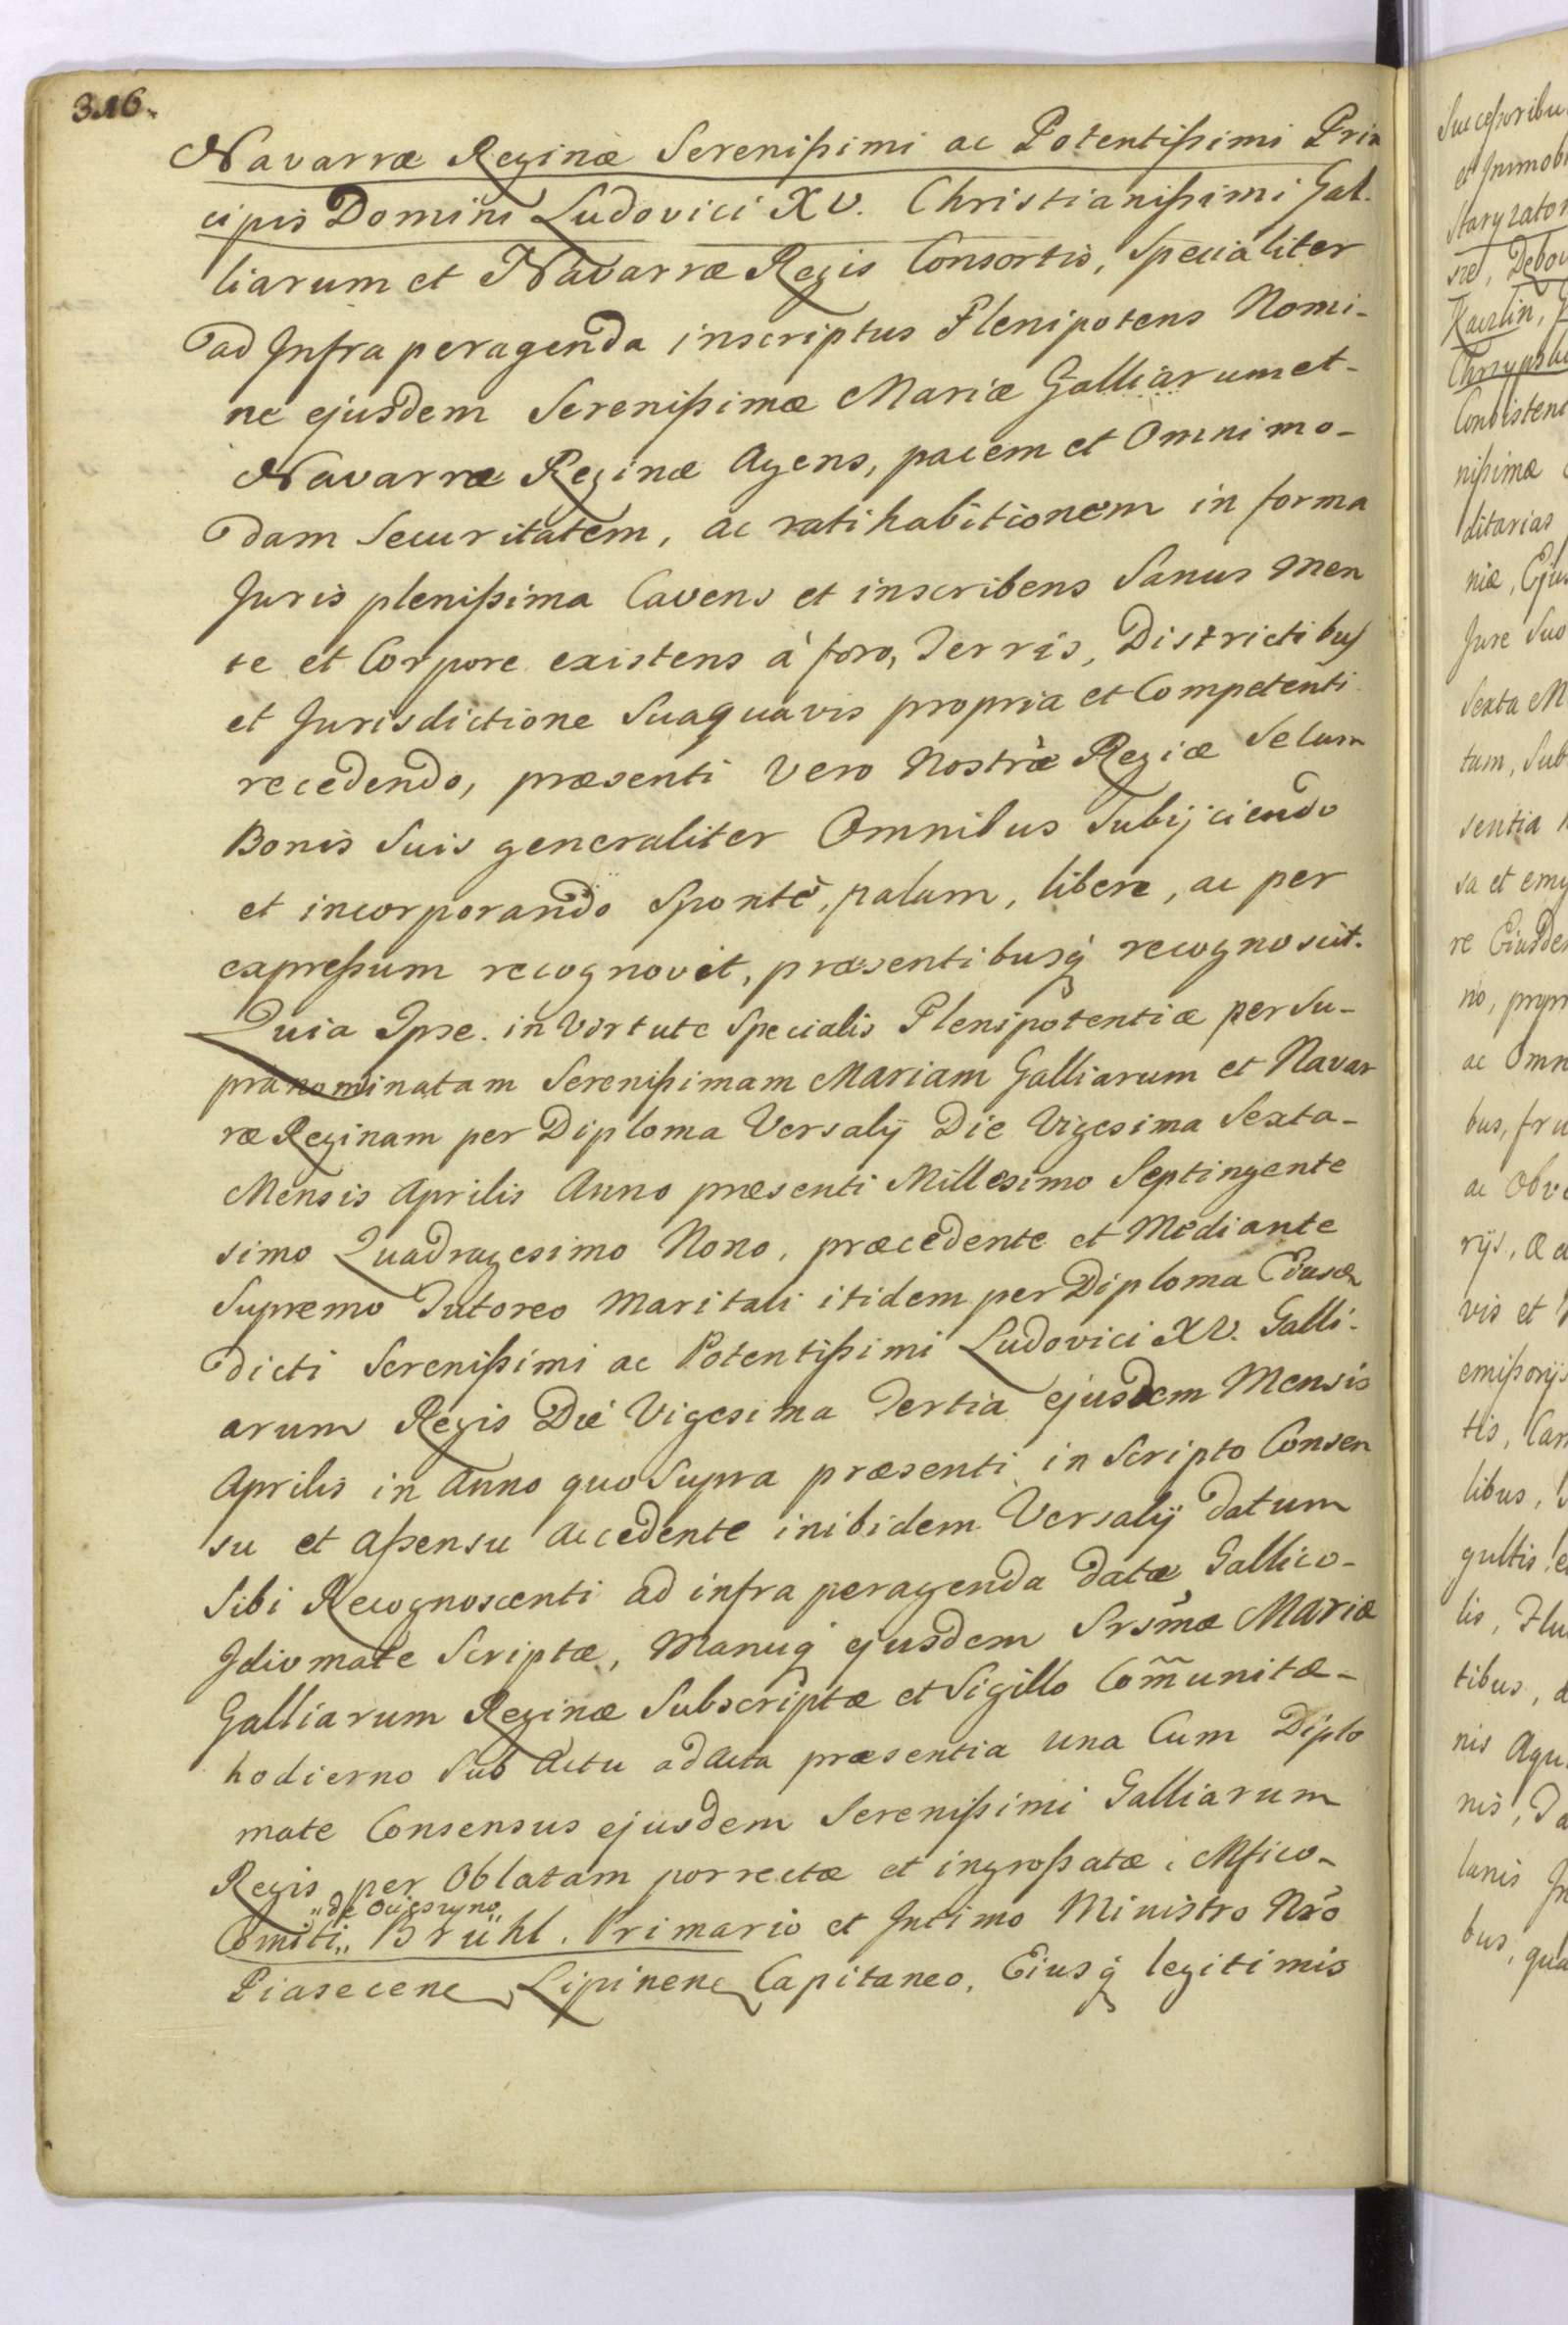 316.
Navarræ Reginæ Serenißimi ac Potentißimi Prin
cipis Domini Ludovici XV. Christianißimi Gal-
liarum et Navarræ Regis Consortis, Specialiter
ad Infra peragenda inscriptus Plenipotens Nomi-
ne ejusdem Serenißimæ Mariæ Galliarum et-
Navarræ Reginæ Agens, pacem et Omnimo-
dam Securitatem, ac ratihabitionem in forma
Juris plenißima Cavens et inscribens Sanus Men
te et Corpore existens à foro, Terris, Districtibus
et Jurisdictione Suaquavis propria et Competenti
recedendo, præsenti Vero Nostræ Regiæ Se cum
Bonis Suis generaliter Omnibus Subijciendo
et incorporando Spontè, palam, libere, ac per
expreßum recognovit, præsentibusq́ recognoscit.
Quia Ipse in Virtute Specialis Plenipotentiæ per Su-
pranominatam Serenißimam Mariam Galliarum et Navar
ræ Reginam per Diploma Versalÿ Die Vigesima Sexta-
Mensis Aprilis Anno præsenti Millesimo Septingente
simo Quadragesimo Nono, præcedente et Mediante
Supremo Tutoreo Maritali itidem per Diploma
dicti Serenißimi ac Potentißimi Ludovici XV. Galli-
arum Regis Die Vigesima Tertia ejusdem Mensis
Aprilis in Anno quo Supra præsenti in Scripto Consen
su et Aßensu accedente inibidem Versalÿ datum
Sibi Recognoscenti ad infra peragenda datæ Gallico-
Idiomate Scriptæ, Manuq́ ejusdem Srsmæ Mariæ
Galliarum Reginæ Subscriptæ et Sigillo Com̃unitæ-
hodierno Sub Actu ad Acta præsentia una Cum Diplo
mate Consensus ejusdem Serenißimi Galliarum
Regis per Oblatam porrectæ et ingroßatæ, Mfico-
„de Ocieszyno„
Comiti„ Brühl. Primario et Intimo Ministro Nro
Piasecen Lipinen Capitaneo, Eiusq́ legitimis
Succeßoribu
et Immobi
Staryzator
Kawlin,
Consistent
nißimæ
ditarias
niæ, Ejus
Jure Suo
Sexta M
tum, Sub
sentia
sa et emp
re Eiusdem
no, propri
ac Omn
bus, fru
ac Obve
vis et
emißorijs
tis, Cam
libus,
gultis, e
lis, Flu
tibus,
nis Aqu
lanis In
bus, qua